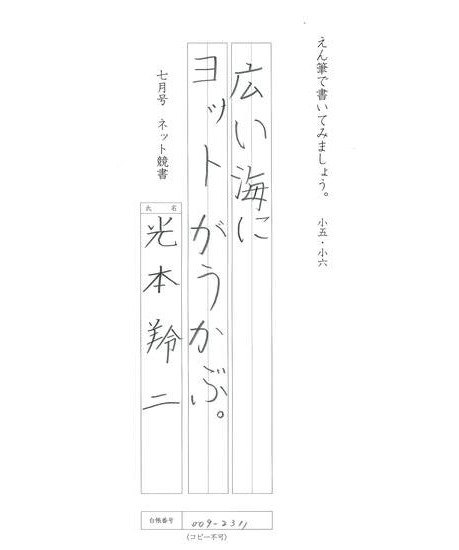 えん筆で書いてみましょう。 小五・小六
広い海に
ヨットがうかぶ。
七月号 ネット競書
氏名
光本翔二
台帳番号 009-2311
(コピー不可)